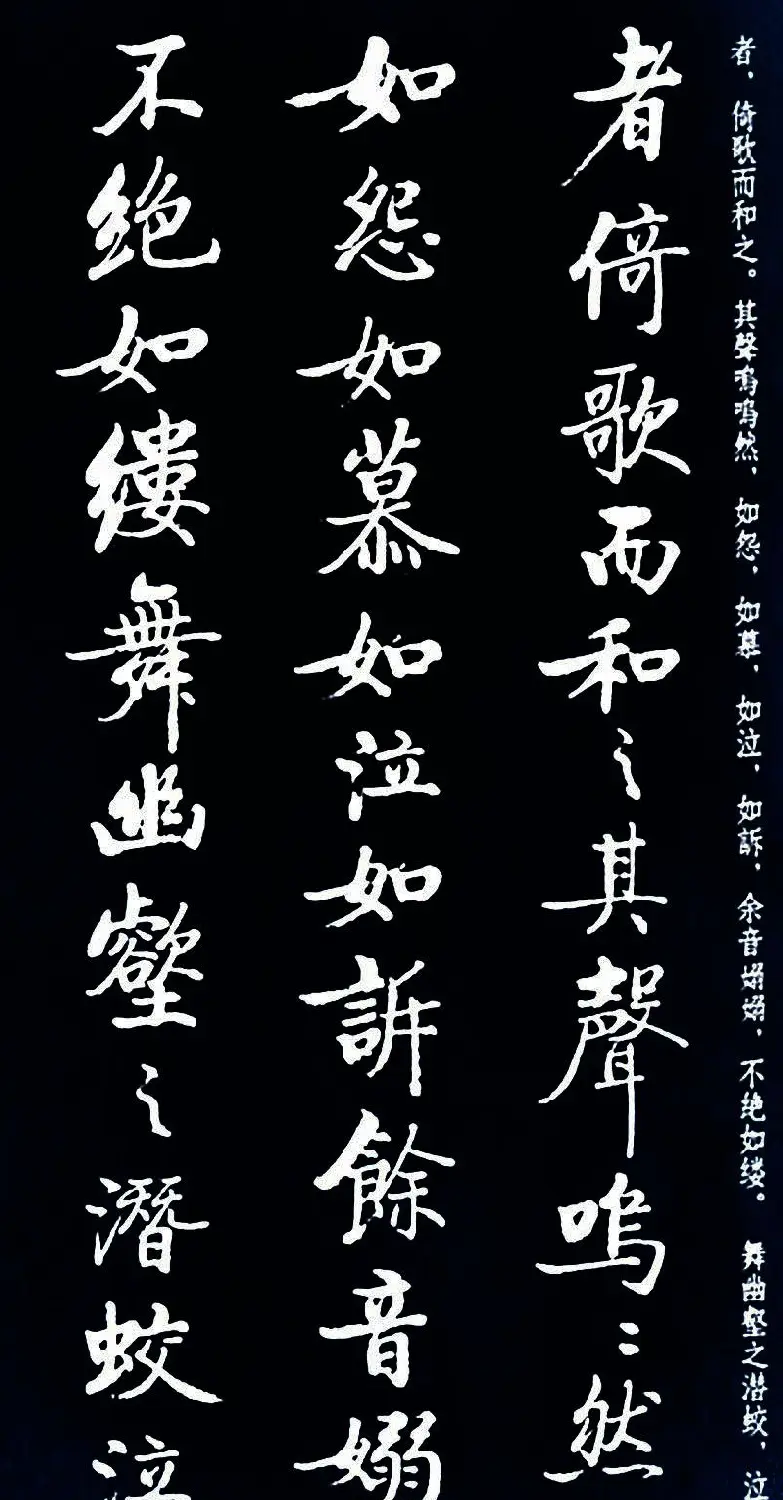 者，倚歌而和之。其聲嗚嗚然，如怨，如慕，如泣，如訴，余音嫋嫋，不绝如缕。舞幽壑之潜蛟，泣
者倚歌而和之其聲嗚〻然
如怨如慕如泣如訴餘音嫋
不絶如縷舞幽壑之潛蛟泣